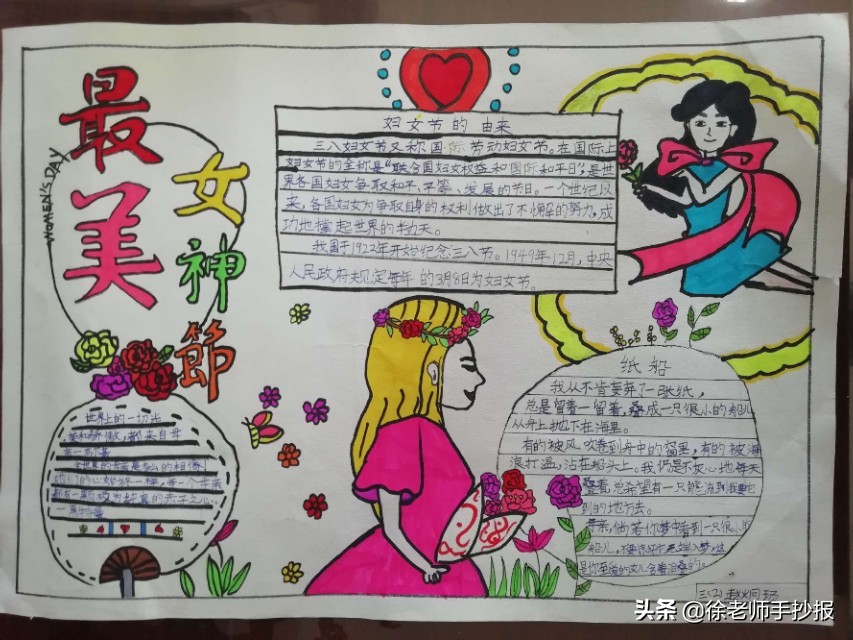 最美
女神節
WOMEN'S DAY
妇女节的由来
三八妇女节又称国际劳动妇女节。在国际上
妇女节的全称是"联合国妇女权益和国际和平日",是世
界各国妇女争取和平、平等、发展的节日。一个世纪以
来,各国妇女为争取自身的权利做出了不懈的努力,成
功地撑起世界的半边天。
我国于1922年开始纪念三八节。1949年12月,中央
人民政府规定每年的3月8日为妇女节。
世界上的一切光
荣和骄傲,都来自母
亲
纸船
我从不肯妄弃了一张纸,
总是留着一留着,叠成一只很小的船儿
从舟上抛下在海里。
有的被风吹卷到舟中的窗里,有的被海
浪打湿,沾在船头上。我仍是不灰心地每天
叠着,总希望有一只能流到我要它
到的地方去。
母亲,倘若你梦中看到一只很小的
船儿,不要惊讶它无端入梦。这
是你至爱的女儿含着泪叠的。
三(2)
头条 @徐老师手抄报